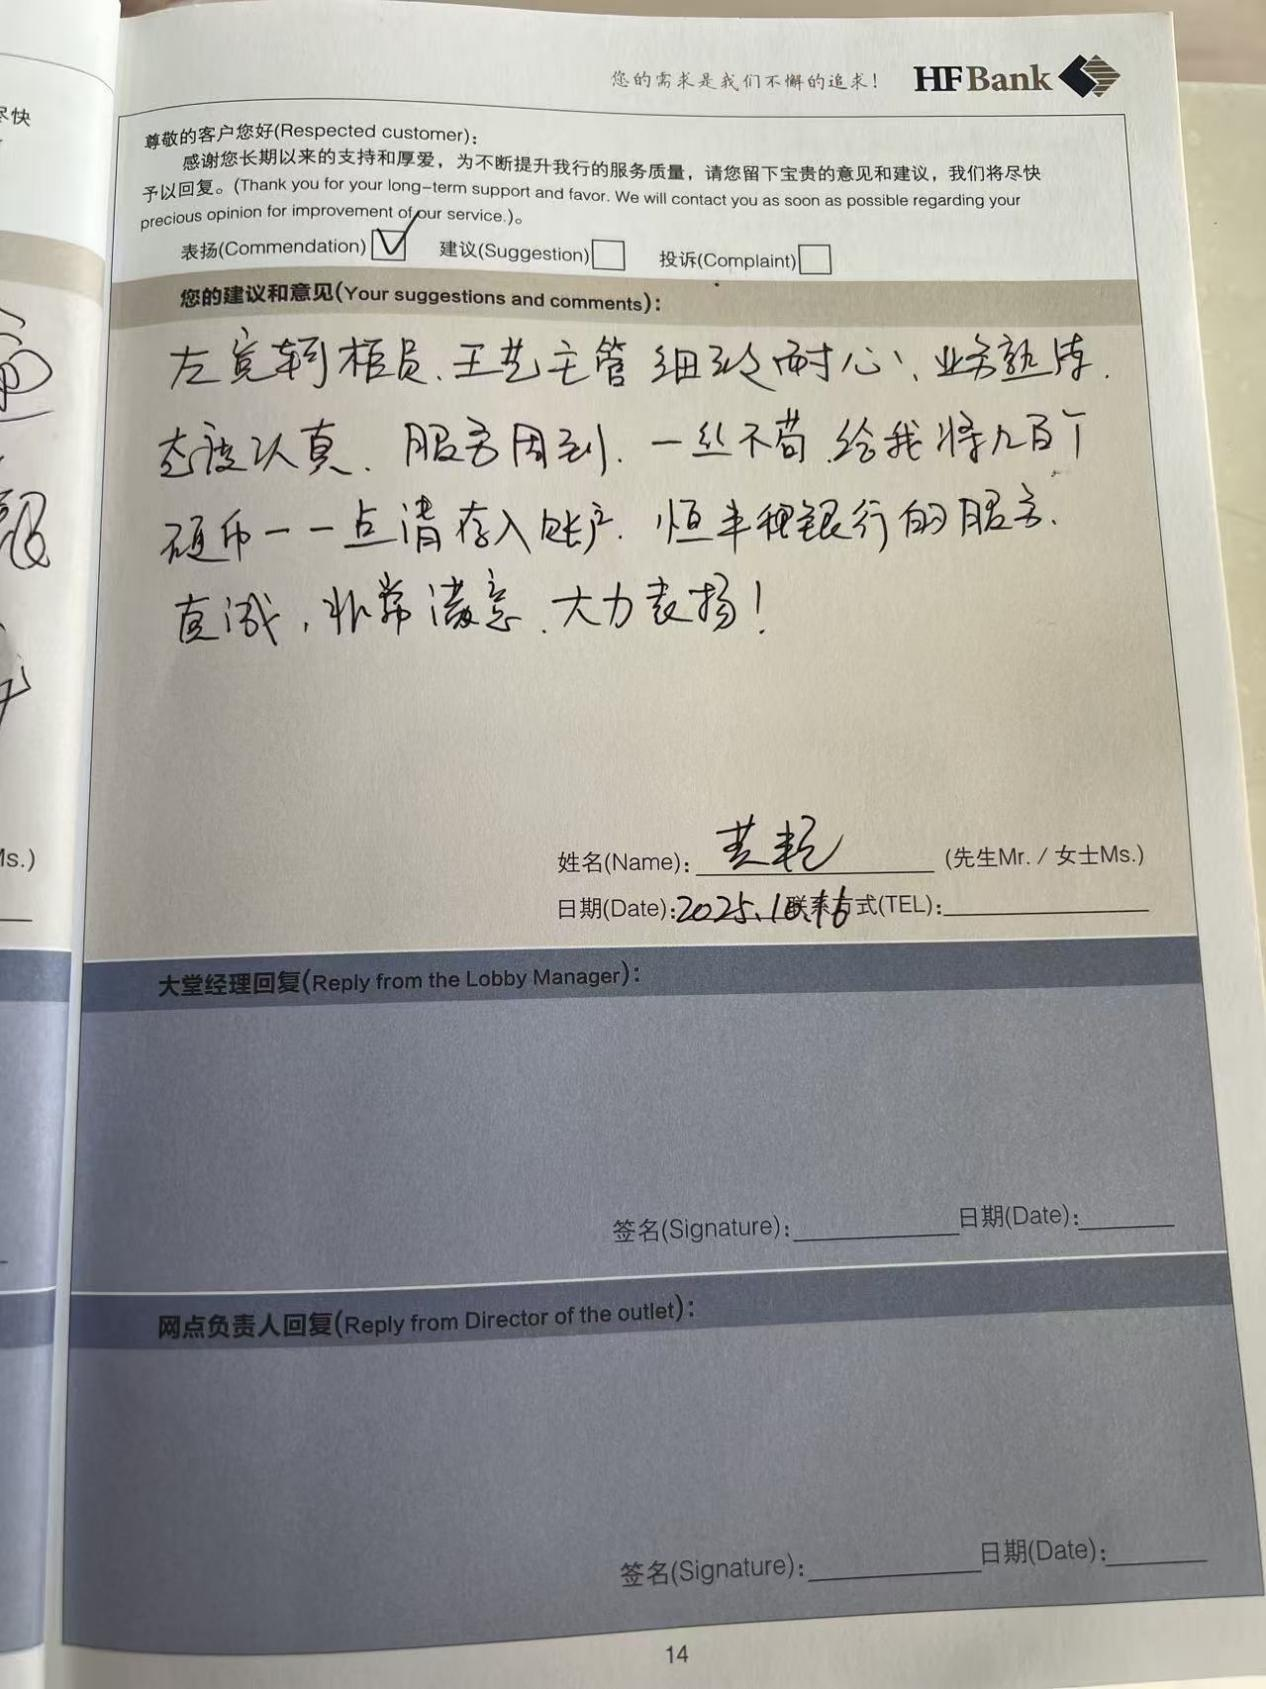 您的需求是我们不懈的追求!
HFBank
尽快
尊敬的客户您好(Respected customer):
感谢您长期以来的支持和厚爱，为不断提升我行的服务质量，请您留下宝贵的意见和建议，我们将尽快
予以回复。(Thank you for your long-term support and favor. We will contact you as soon as possible regarding your
precious opinion for improvement of our service.)。
表扬(Commendation) 建议(Suggestion) 投诉(Complaint)
您的建议和意见(Your suggestions and comments):
左宽轲柜员、王艺主管细致耐心、业务熟练.
态度认真、服务周到.一丝不苟.给我将九百个
硬币一一点清存入账户.恒丰银行的服务.
真诚,非常满意.大力表扬!
姓名(Name): 黄 (先生Mr. / 女士Ms.)
日期(Date):2025.10.16 联系方式(TEL):
Ms.)
大堂经理回复(Reply from the Lobby Manager):
签名(Signature): 日期(Date):
网点负责人回复(Reply from Director of the outlet):
签名(Signature): 日期(Date):
14